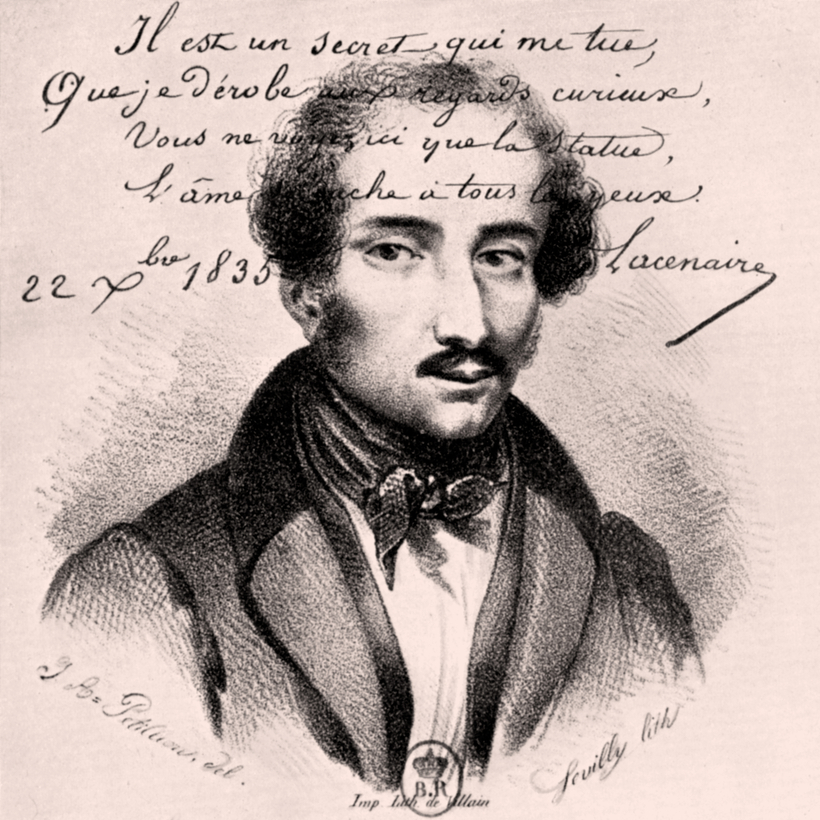 Il est un secret qui me tue,
Que je dérobe aux regards curieux,
Vous ne voyez ici que la Statue,
L'âme se cache à tous les yeux.
22 Xbre 1835
Lacenaire
del.
lith
B.R
Imp. Lith. de Villain